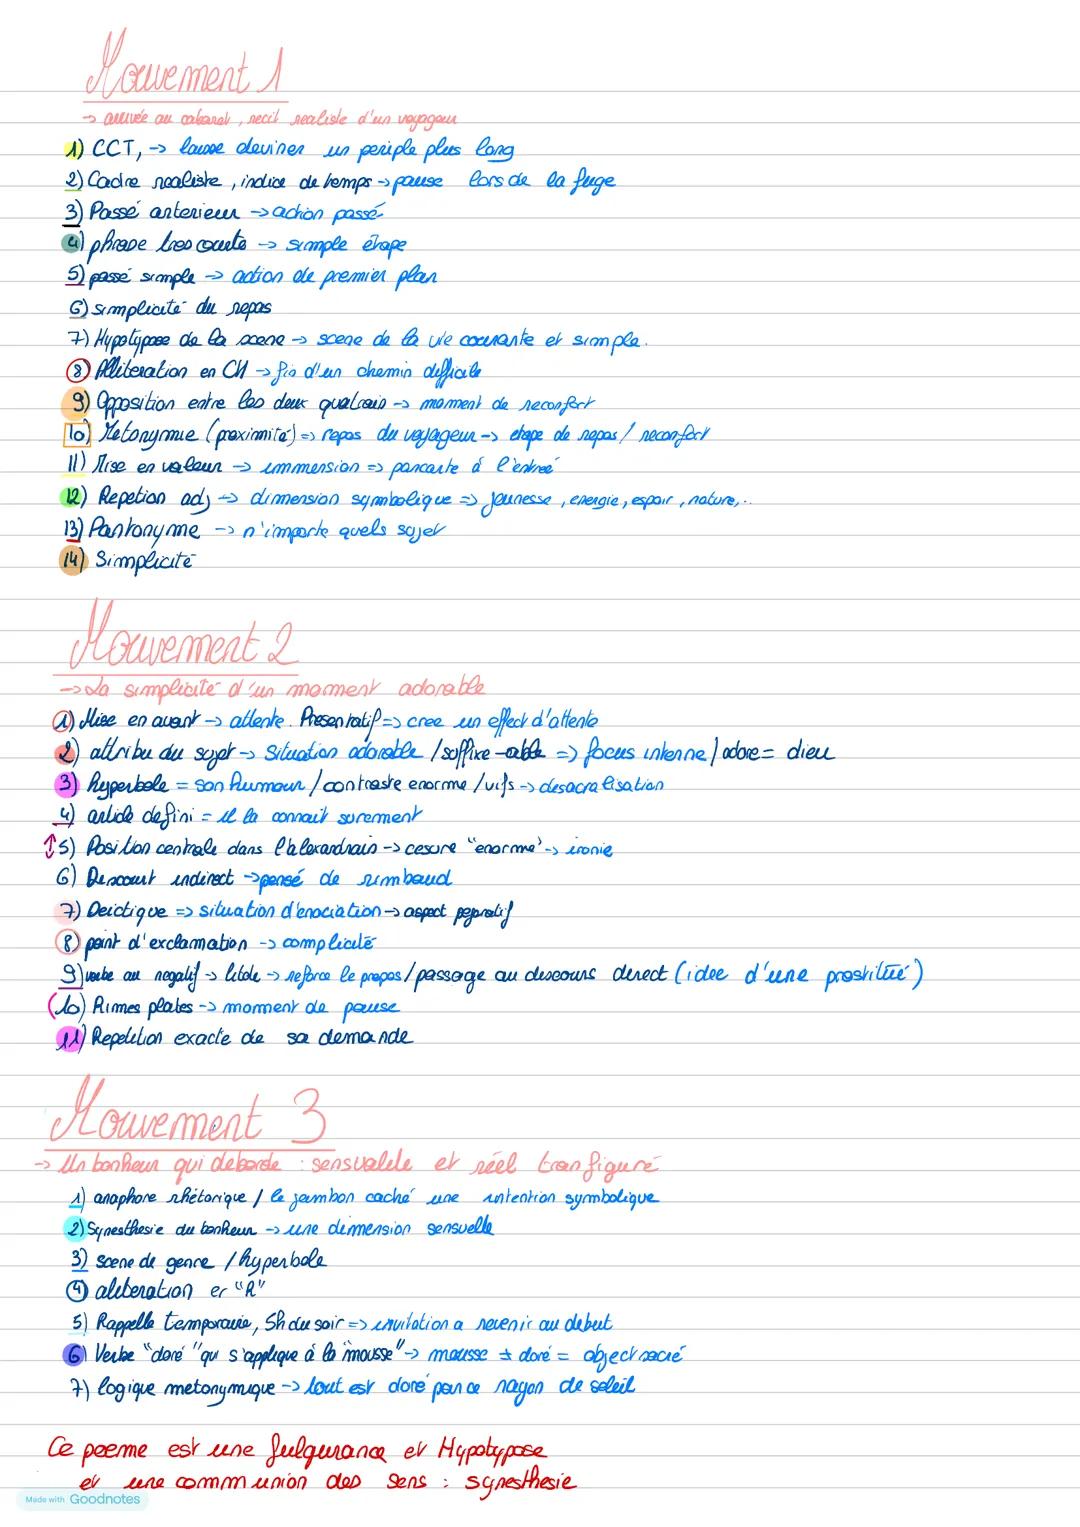 Mouvement 1
-> arrivée au cabaret, recit realiste d'un voyageur
1) CCT, -> laisse deviner un periple plus long
2) Cadre realiste, indice de temps -> pause lors de la fuge
3) Passé anterieur -> action passé
4) phrase tres courte -> simple étape
5) passé simple -> action de premier plan
6) simplicité du repas
7) Hypotypose de la scene -> scene de la vie courante et simple.
8) Alliteration en CH -> fin d'un chemin difficile
9) Opposition entre les deux quatrain -> moment de reconfort
10) Metonymie (proximité) => repos du voyageur -> etape de repos / reconfort
11) Mise en valeur -> immension => pancarte à l'entreé
12) Repetion adj -> dimension symbolique => jeunesse, energie, espoir, nature,..
13) Pantonyme -> n'importe quels sujet
14) Simplicité
Mouvement 2
-> La simplicité d'un moment adorable
1) Mise en avant -> attente. Presentatif => cree un effect d'attente
2) attribu du sujet -> Situation adorable / suffixe -able => focus interne / adore = dieu
3) hyperbole = son humour / contraste enorme / vifs -> desacralisation
4) article defini = il la connait surement
↕5) Position centrale dans l'alexandrain -> cesure "enorme" -> ironie
6) Descourt indirect -> pensé de rimbaud
7) Deictique => situation d'enociation -> aspect pejoratif
8) point d'exclamation -> complicité
9) verbe au negatif -> litote -> reforce le propos / passage au descours direct (idee d'une prostitué)
(10) Rimes plates -> moment de pause
11) Repetition exacte de sa demande
Mouvement 3
-> Un bonheur qui deborde : sensualite et réel tranfiguré
1) anaphore rhétorique / le jambon caché une intention symbolique
2) Synesthesie du bonheur -> une dimension sensuelle
3) scene de genre / hyperbole
4) aliteration er "R"
5) Rappelle temporaire, 5h du soir => invitation a revenir au debut
6) Verbe "doré" qui s'applique à la "mousse" -> mousse + doré = object sacré
7) logique metonymique -> tout est doré par ce rayon de soleil
Ce poeme est une fulgurance et Hypotypose
et une communion des sens : synesthesie
Made with Goodnotes